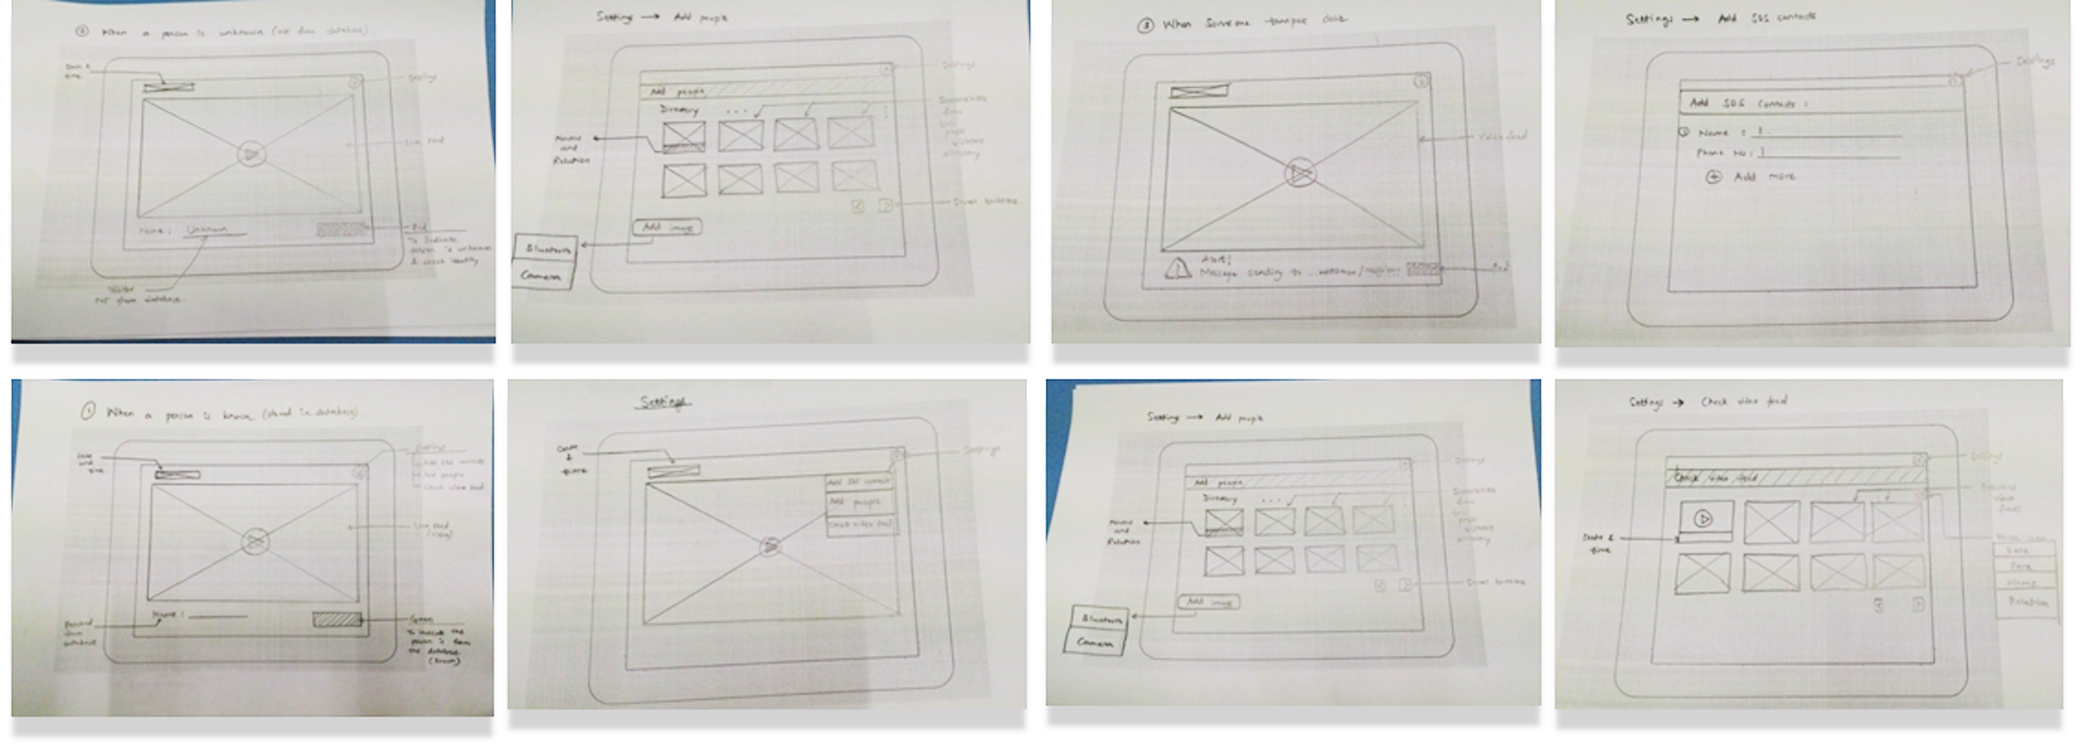 ② When a person is unknown (not from database)
Date &
time
Settings
Live feed
Name: Unknown
Red
To indicate
person is unknown
& check identity.
not from database
Settings → Add people
Settings
Add people
Directory
...
Name
and
Relation
from
past
visitors
directory
Scroll buttons.
Add image
Bluetooth
Camera
③ When Someone tampers
Video feed
Alert!
Message sending to
Red
Settings → Add SOS contacts
Settings
Add SOS Contacts :
① Name :
Phone No:
+ Add more
① When a person is known (stored in database)
Date
and
time
Settings
→ Add SOS contacts
→ Add people
→ Check video feed
Live feed
Name :
from
database
Green
To indicate the
person is from
the database
(known)
Settings
Date
&
time
Settings
Add SOS contact
Add people
Check video feed
Settings → Add people
Settings
Add people
Directory
...
Name
and
Relation
from
past
visitors
directory
Scroll buttons
Add image
Bluetooth
Camera
Settings → Check video feed
Settings
Check video feed
video
feeds
Date &
time
Date
Face
Name
Relation